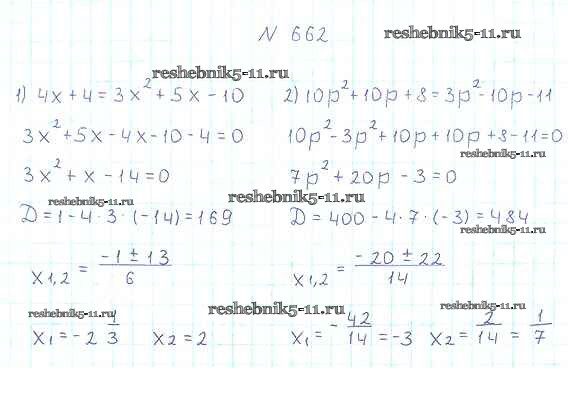 N 662 reshebnik5-11.ru
reshebnik5-11.ru
1) 4x + 4 = 3x² + 5x - 10
3x² + 5x - 4x - 10 - 4 = 0
3x² + x - 14 = 0
reshebnik5-11.ru
D = 1 - 4 · 3 · (-14) = 169
x1,2 = (-1 ± 13)/6
reshebnik5-11.ru
x1 = -2 1/3 x2 = 2
2) 10p² + 10p + 8 = 3p² - 10p - 11
10p² - 3p² + 10p + 10p + 8 - 11 = 0
reshebnik5-11.ru
7p² + 20p - 3 = 0
reshebnik5-11.ru
D = 400 - 4 · 7 · (-3) = 484
reshebnik5-11.ru
x1,2 = (-20 ± 22)/14
reshebnik5-11.ru
reshebnik5-11.ru
x1 = -42/14 = -3 x2 = 2/14 = 1/7